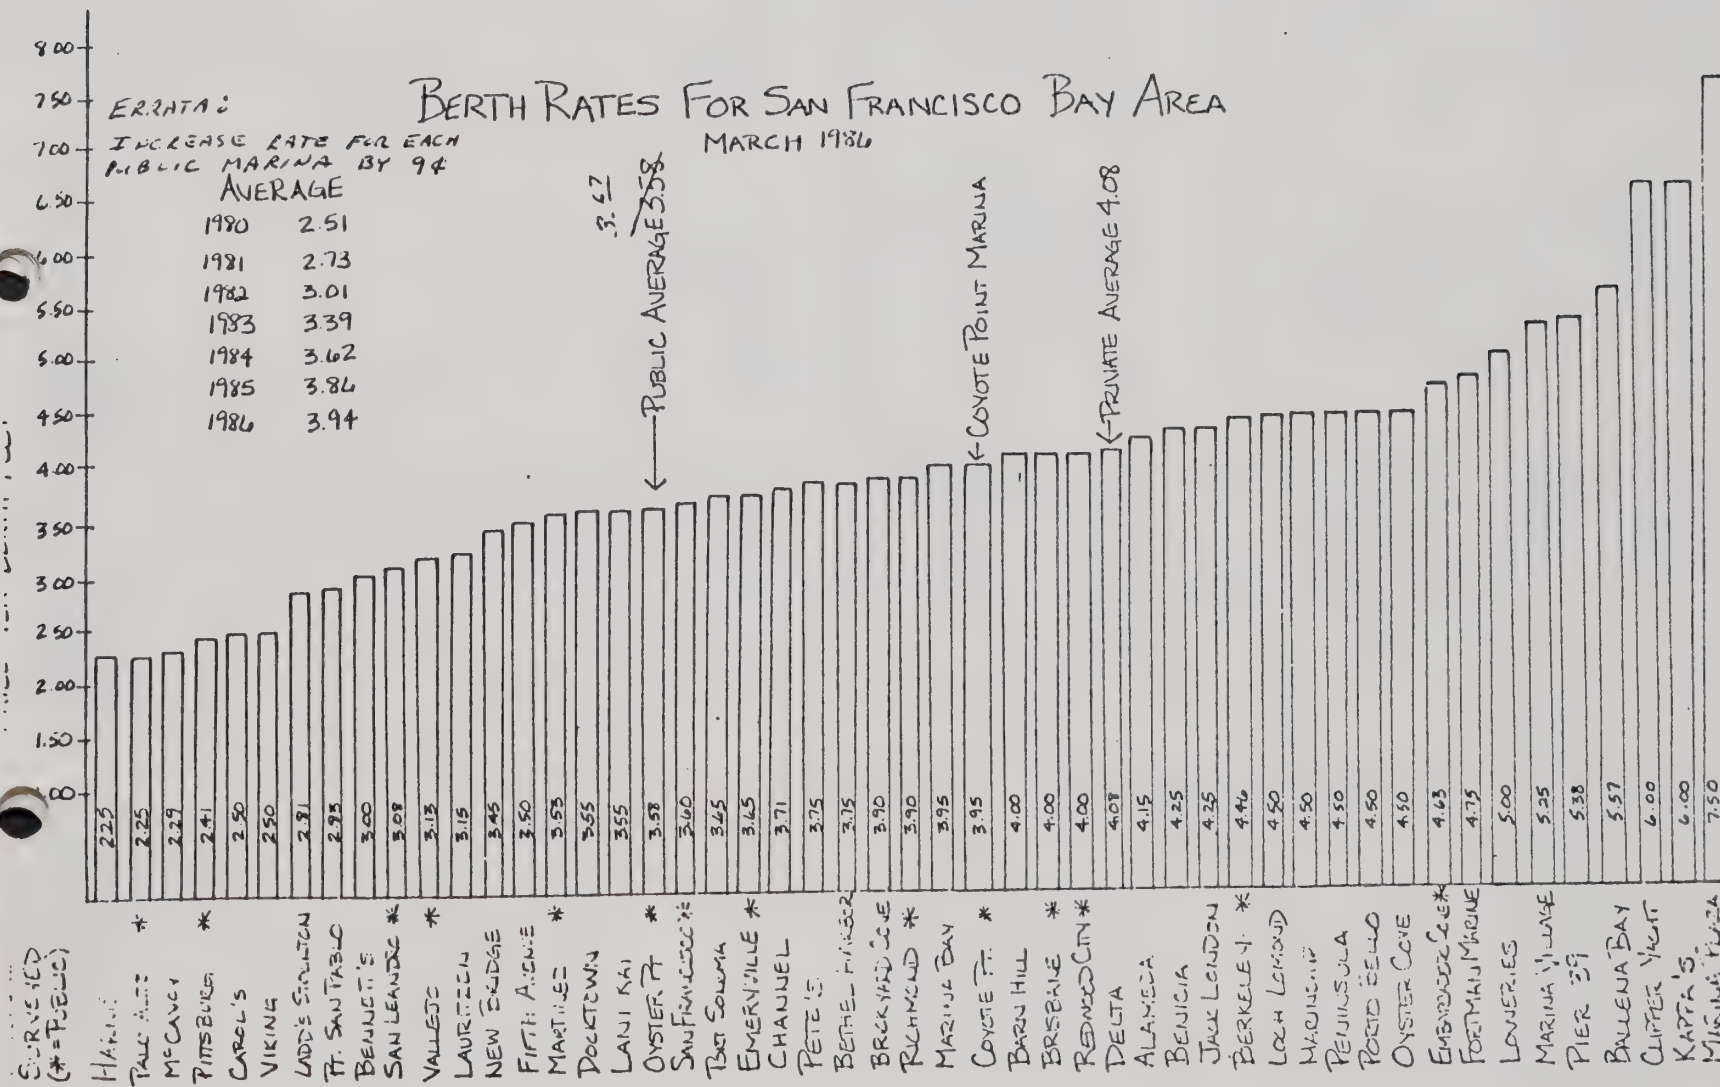 BERTH RATES FOR SAN FRANCISCO BAY AREA
MARCH 1986
ERRATA:
INCREASE RATE FOR EACH
PUBLIC MARINA BY 9¢
AVERAGE
1980 2.51
1981 2.73
1982 3.01
1983 3.39
1984 3.62
1985 3.86
1986 3.94
3.67
PUBLIC AVERAGE 3.58
COYOTE POINT MARINA
PRIVATE AVERAGE 4.08
8.00
7.50
7.00
6.50
6.00
5.50
5.00
4.50
4.00
3.50
3.00
2.50
2.00
1.50
2.25
2.25
2.29
2.41
2.50
2.50
2.81
2.93
3.00
3.08
3.13
3.15
3.45
3.50
3.53
3.55
3.55
3.58
3.60
3.65
3.65
3.71
3.75
3.75
3.90
3.90
3.95
3.95
4.00
4.00
4.00
4.08
4.15
4.25
4.25
4.46
4.50
4.50
4.50
4.50
4.50
4.63
4.75
5.00
5.25
5.38
5.57
6.00
6.00
7.50
SURVEYED
(*=PUBLIC)
PALO ALTO *
McCAVEY
PITTSBURG *
CAROL'S
VIKING
PT. SAN PABLO
BENNETT'S
SAN LEANDRO *
VALLEJO *
LAURITZEN
NEW BRIDGE
FIFTH AVENUE
MARTINEZ *
DOCKTOWN
LANI KAI
OYSTER PT *
SAN FRANCISCO *
PORT SONOMA
EMERYVILLE *
CHANNEL
PETE'S
BETHEL HARBOR
BRICKYARD COVE
RICHMOND *
MARINA BAY
COYOTE PT. *
BARN HILL
BRISBANE *
REDWOOD CITY *
DELTA
ALAMEDA
BENICIA
JACK LONDON
BERKELEY *
LOCH LOMOND
MARINSHIP
PENINSULA
PORTO BELLO
OYSTER COVE
EMBARCADERO COVE *
FORTMAN MARINE
LOWERIES
MARINA VILLAGE
PIER 39
BALLENA BAY
CLIPPER YACHT
KAPPA'S
MARINA PLAZA